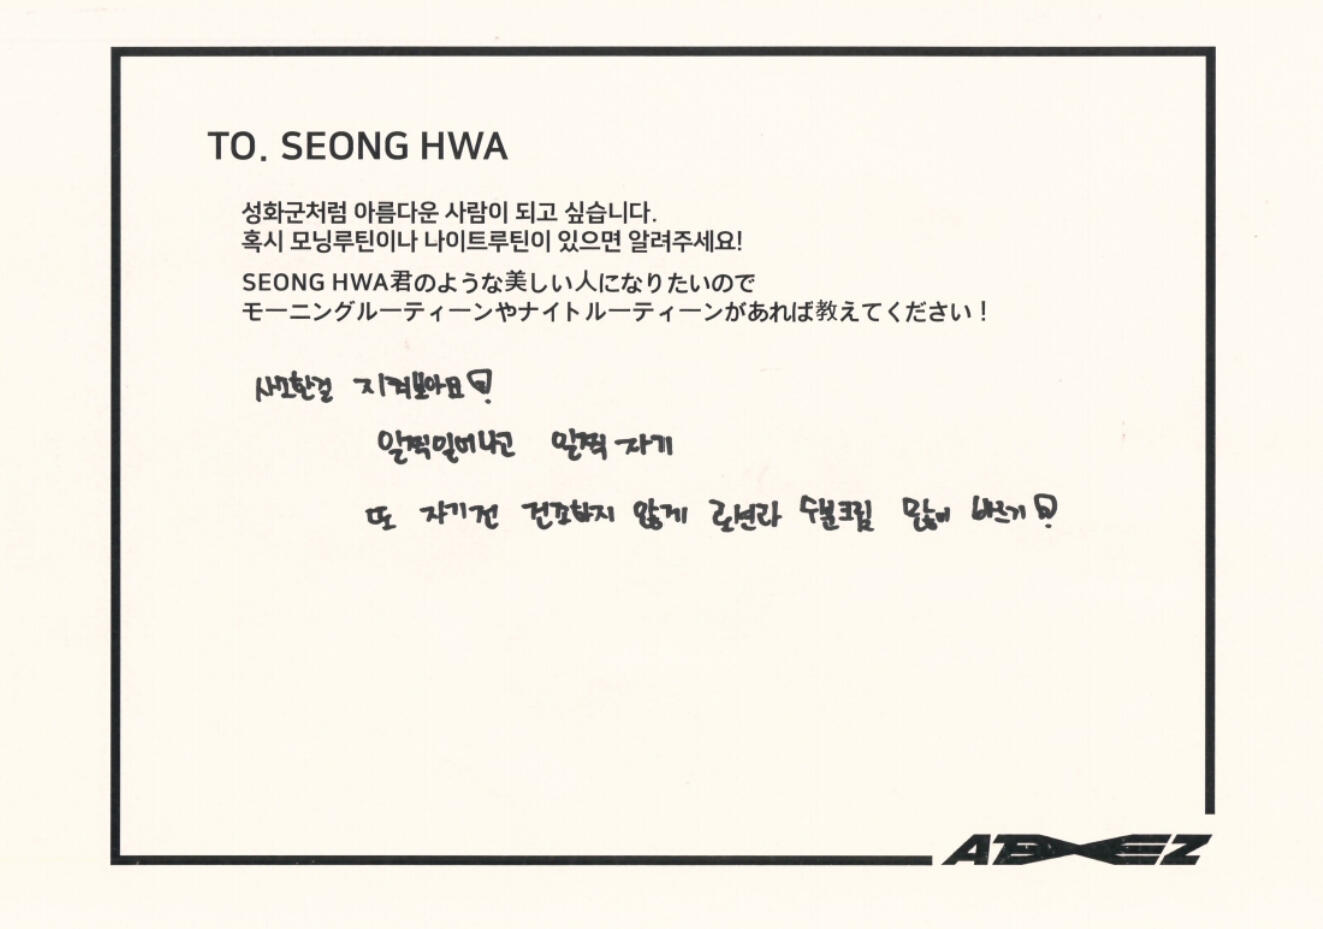 TO. SEONG HWA
성화군처럼 아름다운 사람이 되고 싶습니다.
혹시 모닝루틴이나 나이트루틴이 있으면 알려주세요!
SEONG HWA君のような美しい人になりたいので
モーニングルーティーンやナイトルーティーンがあれば教えてください！
사소한걸 지켜보아요!
일찍일어나고 일찍 자기
또 자기전 건조하지 않게 로션과 수분크림 많이 바르기!
ATEEZ